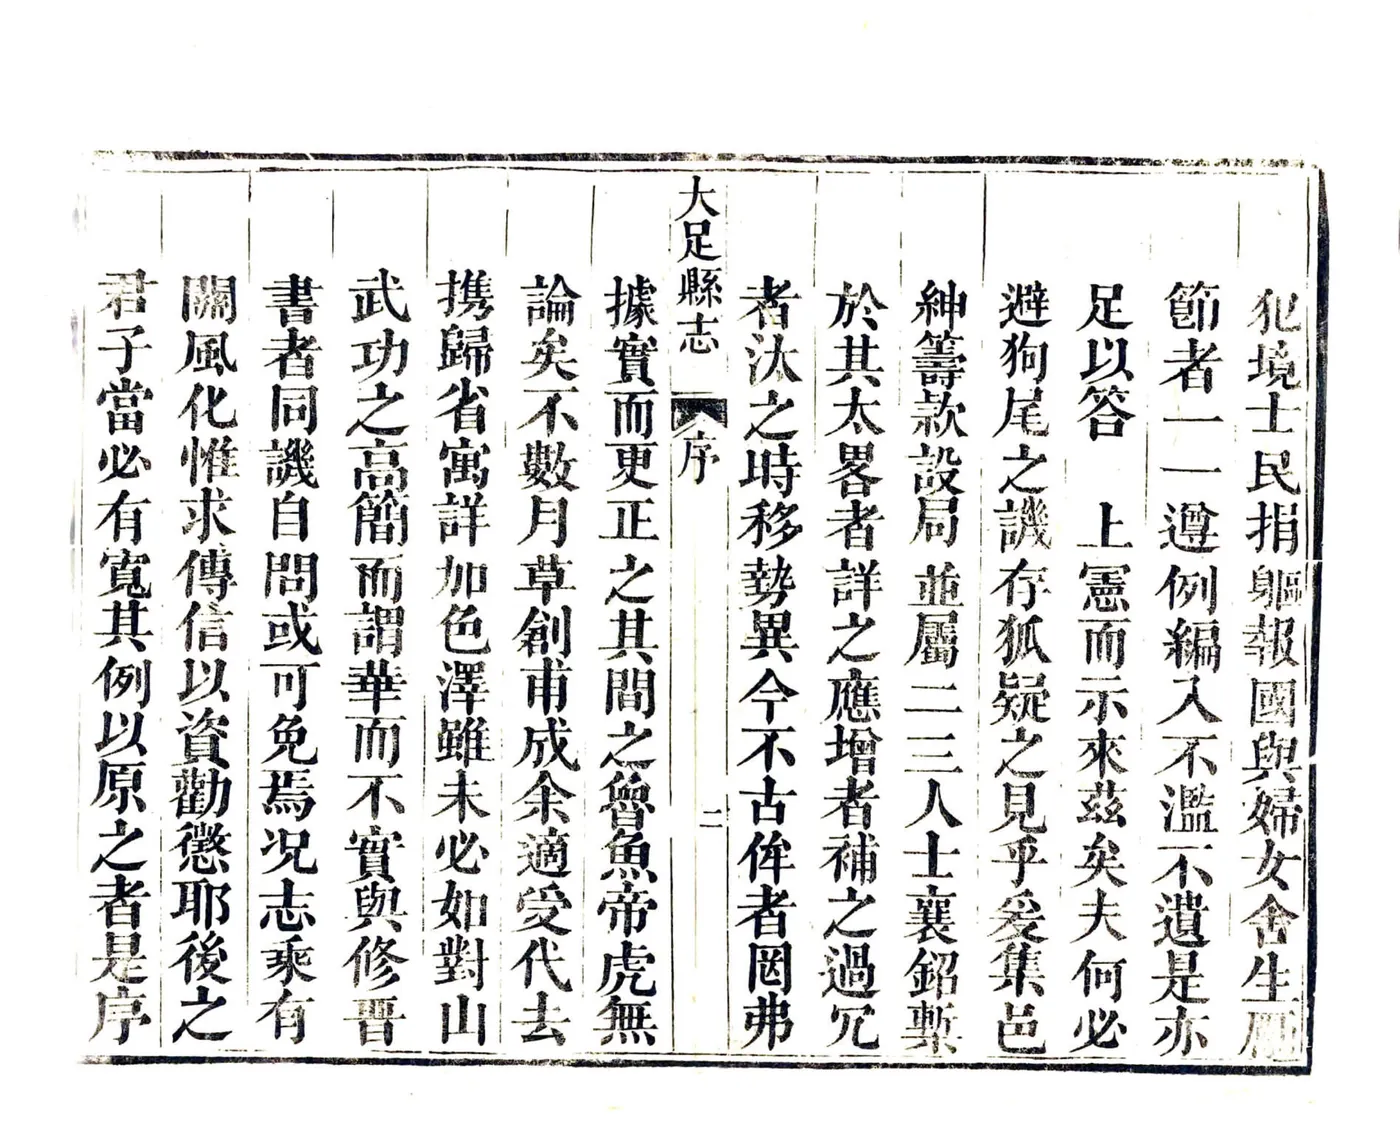 犯境士民捐軀報國與婦女舍生厲
節者一一遵例編入不濫不遺是亦
足以答　上憲而示來茲矣夫何必
避狗尾之譏存狐疑之見乎爰集邑
紳籌欵設局並屬二三人士襄鉛槧
於其太畧者詳之應增者補之過冗
者汰之時移勢異今不古侔者罔弗
大足縣志　序　二
據實而更正之其間之魯魚帝虎無
論矣不數月草創甫成余適受代去
携歸省寓詳加色澤雖未必如對山
武功之高簡而謂華而不實與修晋
書者同譏自問或可免焉况志乘有
關風化惟求傳信以資勸懲耶後之
君子當必有寬其例以原之者是序